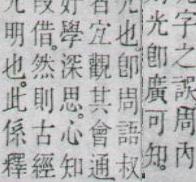 字之誤周内
光卽廣可知
光也卽周語叔
者宜觀其會通
好學深思心知
段借然則古經
明也此係釋